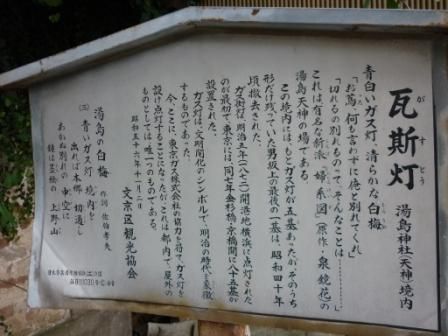 瓦斯灯
がすとう
湯島神社天神境内
青白いガス灯、清らかな白梅
「お蔦、何も言わずに俺と別れてくれ」
「切れるの別れるのって、そんなことは……
これは有名な新派「婦系図」(原作・泉鏡花)の
湯島天神の場である。
この境内には、もとガス灯が五基あったが、そのうち
形だけ残っていた男坂上の最後の一基は、昭和四十年
頃撤去された。
ガス街灯は、明治五年(八七二)開港地横浜に点灯された
のが最初で、東京には、同七年金杉橋・京橋間に八十五基が
設置された。
ガス灯は、文明開化のシンボルで、明治の時代を象徴
するものであった。
今、ここに、東京ガス株式会社の協力を得て、ガス灯を
設け点灯することになったが、これは都内で屋外の
ものとしては唯一つのものである。
昭和五十六年十一月二日
文京区観光協会
湯島の白梅
作詞 佐伯孝夫
(三)青いガス灯 境内を
出れば本郷 切通し
あかぬ別れの 中空に
鐘は墨絵の 上野山